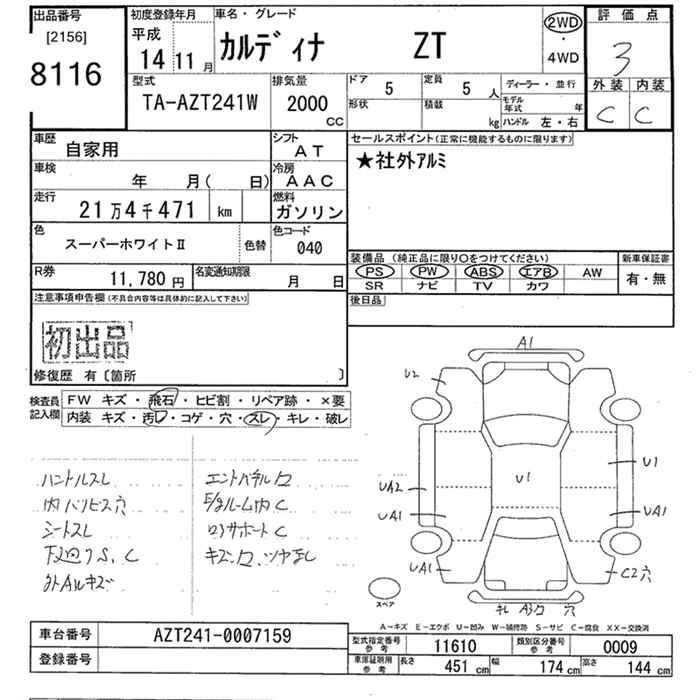 出品番号
[2156]
8116
初度登録年月
平成
14 11 月
車名・グレード
カルディナ ZT
2WD
・
4WD
評価点
3
外装 内装
C C
型式
TA-AZT241W
排気量
2000
CC
ドア
5
定員
5 人
形状
積載
kg
ディーラー・並行
モデル年式 年
ハンドル 左・右
車歴
自家用
シフト
AT
車検
年 月( 日)
冷房
AAC
走行
21万4千471 km
燃料
ガソリン
色
スーパーホワイトⅡ
色替
色コード
040
R券
11,780 円
名変通知期限
月 日
セールスポイント(正常に機能するものに限ります)
★社外アルミ
装備品 (純正品に限り○をつけてください)
PS PW ABS エアB AW
SR ナビ TV カワ
新車保証書
有・無
後日品
注意事項申告欄(不具合内容等は具体的に記入して下さい)
初出品
修復歴 有〔箇所 〕
検査員記入欄
FW キズ・飛石・ヒビ割・リペア跡・×要
内装 キズ・汚レ・コゲ・穴・スレ・キレ・破レ
ハントルスレ
内ハリビス穴
シートスレ
下廻りS、C
外AWキズ
エントパネルワ
ルーム内C
サポートC
キズ、ワ、ツヤ無し
A1
U2
U1
U1
UA2
UA1
UA1
UA1
C2穴
スペア
キレ A3ワ 穴
A－キズ E－エクボ U－凹み W－補修跡 S－サビ C－腐食 XX－交換済
車台番号
AZT241-0007159
登録番号
型式指定番号
参考
11610
類別区分番号
参考
0009
車庫証明用
参考
長さ
451 cm
幅
174 cm
高さ
144 cm